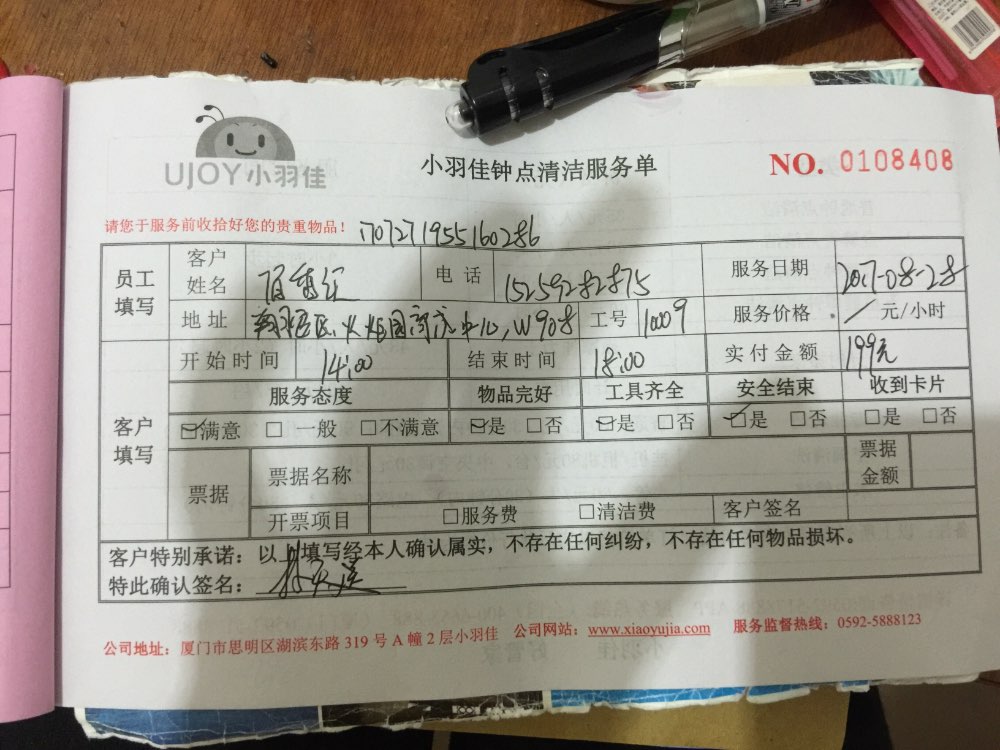 UJOY小羽佳
小羽佳钟点清洁服务单
NO. 0108408
请您于服务前收拾好您的贵重物品！
员工填写 客户姓名 电话 15259282875 服务日期 2017-08-28
地址 W908 工号 10009 服务价格 / 元/小时
客户填写 开始时间 14:00 结束时间 18:00 实付金额 199元
服务态度 物品完好 工具齐全 安全结束 收到卡片
☑满意 □ 一般 □不满意 ☑是 □否 ☑是 □否 ☑是 □否 □是 □否
票据 票据名称 票据金额
开票项目 □服务费 □清洁费 客户签名
客户特别承诺：以上填写经本人确认属实，不存在任何纠纷，不存在任何物品损坏。
特此确认签名：
公司地址：厦门市思明区湖滨东路 319 号 A 幢 2 层小羽佳 公司网站：www.xiaoyujia.com 服务监督热线：0592-5888123